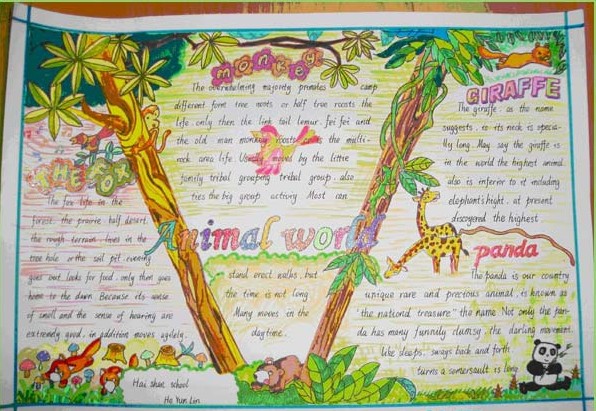 MONKEY
The overwhelming majority primates camp
different form tree roots or half tree roosts the
life. only then the link tail lemur. fei fei and
the old man monkey roosts the multi-
rock area life Usually moved by the little
family tribal grouping tribal group. also
ties the big group activity Most can
stand erect walks. but
the time is not long
Many moves in the
daytime.
Animal world
THE FOX
The fox life in the
forest. the prairie. half desert.
the rough terrain lives in the
tree hole or the soil pit. evening
goes out looks for food. only then goes
home to the dawn Because its sense
of smell and the sense of hearing are
extremely good. in addition moves agilely.
GIRAFFE
The giraffe. as the name
suggests. is its neck is specia-
lly long. May say the giraffe is
in the world the highest animal.
also is inferior to it including
elephants hight. at present
discoyered the highest
panda
The panda is our country
unique rare and precious animal. is known as
"the national treasure" the name Not only the pan-
da has many funnily clumsy. the darling movement.
like sleeps. sways back and forth
turns a somersault is long
Hai shan school
He Yun Lin